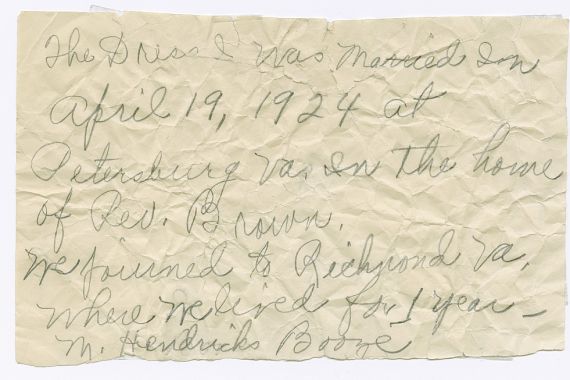 The Dress I was Married In
April 19, 1924 at
Petersburg Va. In the home
of Rev. Brown.
We journed to Richmond Va,
where we lived for 1 year—
M. Hendricks Booze